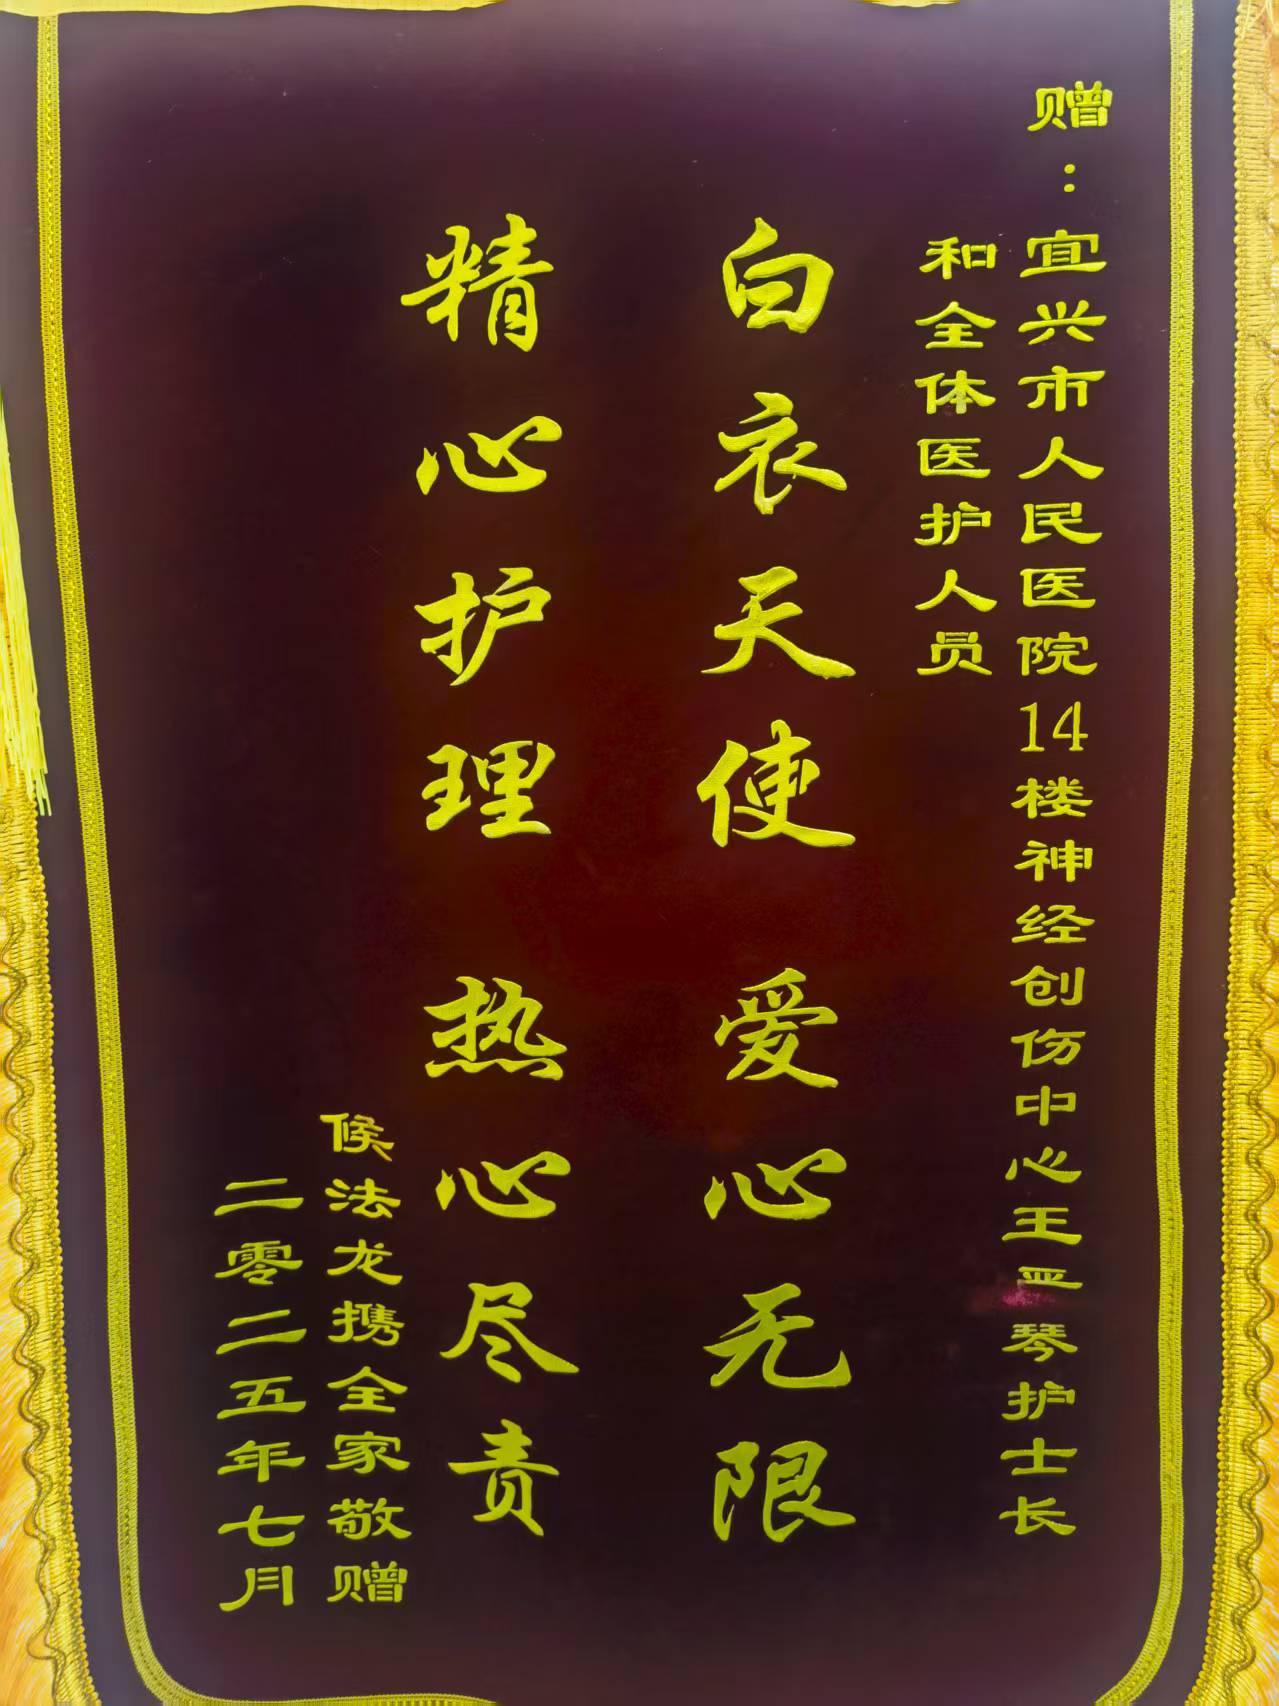 赠：宜兴市人民医院14楼神经创伤中心王亚琴护士长
和全体医护人员
白衣天使 爱心无限
精心护理 热心尽责
候法龙携全家敬赠
二零二五年七月